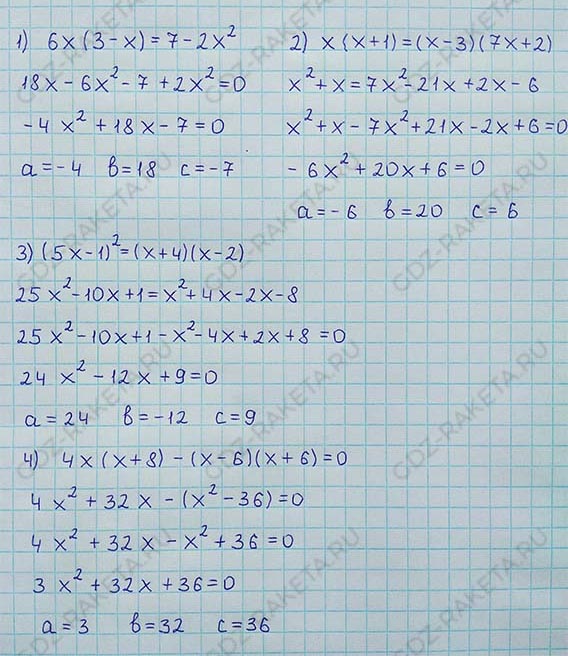 1) 6x(3-x)=7-2x²
18x-6x²-7+2x²=0
-4x²+18x-7=0
a=-4 b=18 c=-7
2) x(x+1)=(x-3)(7x+2)
x²+x=7x²-21x+2x-6
x²+x-7x²+21x-2x+6=0
-6x²+20x+6=0
a=-6 b=20 c=6
3) (5x-1)²=(x+4)(x-2)
25x²-10x+1=x²+4x-2x-8
25x²-10x+1-x²-4x+2x+8=0
24x²-12x+9=0
a=24 b=-12 c=9
4) 4x(x+8)-(x-6)(x+6)=0
4x²+32x-(x²-36)=0
4x²+32x-x²+36=0
3x²+32x+36=0
a=3 b=32 c=36
GDZ-RAKETA.RU
GDZ-RAKETA.RU
GDZ-RAKETA.RU
GDZ-RAKETA.RU
GDZ-RAKETA.RU
GDZ-RAKETA.RU